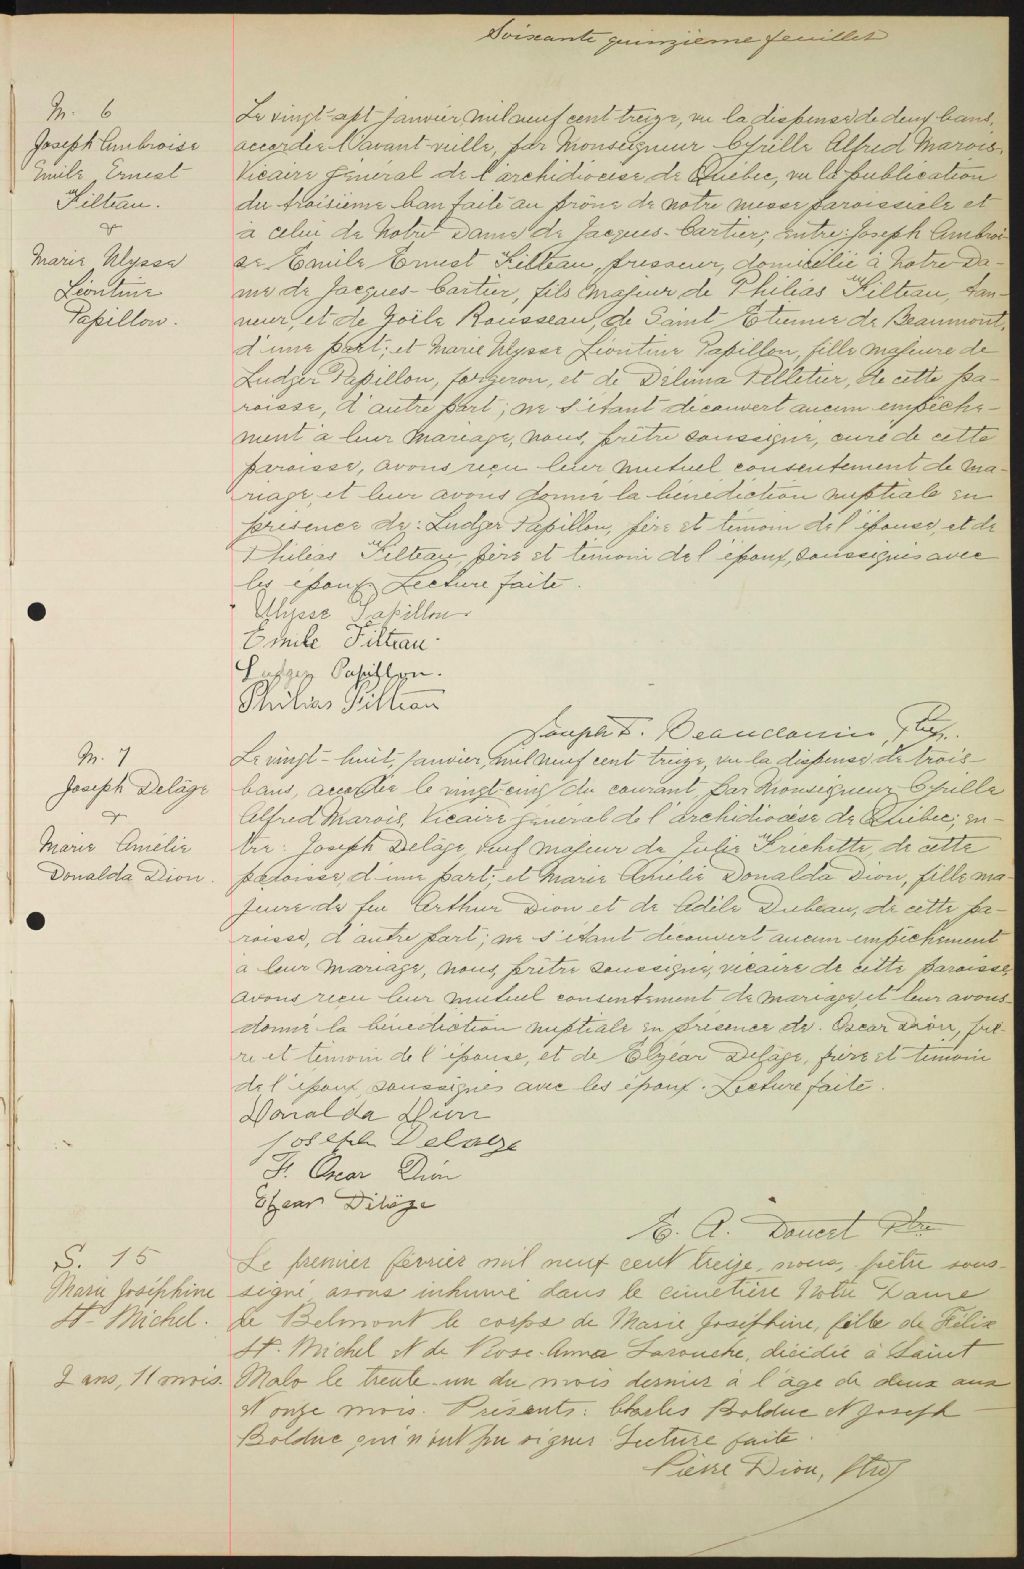 Soixante quinzième feuillet
M. 6
Joseph Ambroise
Emile Ernest
Filteau.
&
Marie Ulysse
Léontine
Papillon.
Le vingt-sept janvier mil neuf cent treize, vu la dispense de deux bans,
accordée l'avant-veille, par Monseigneur Cyrille Alfred Marois,
Vicaire général de l'archidiocèse de Québec, vu la publication
du troisième ban faite au prône de notre messe paroissiale et
à celui de Notre Dame de Jacques-Cartier; entre: Joseph Ambroi-
se Emile Ernest Filteau, presseur, domicilié à Notre Da-
me de Jacques-Cartier, fils majeur de Philias Filteau, tan-
neur, et de Joële Rousseau, de Saint Etienne de Beaumont,
d'une part; et Marie Ulysse Léontine Papillon, fille majeure de
Ludger Papillon, forgeron, et de Délima Pelletier, de cette pa-
roisse, d'autre part; ne s'étant découvert aucun empêche-
ment à leur mariage, nous, prêtre soussigné, curé de cette
paroisse, avons reçu leur mutuel consentement de ma-
riage, et leur avons donné la bénédiction nuptiale en
présence de: Ludger Papillon, père et témoin de l'épouse, et de
Philias Filteau, père et témoin de l'époux, soussignés avec
les époux. Lecture faite.
Ulysse Papillon.
Emile Filteau.
Ludger Papillon.
Philias Filteau
Joseph F. Beaudouin, Ptre.
M. 7
Joseph Delâge
&
Marie Amélie
Donalda Dion.
Le vingt-huit, janvier, mil neuf cent treize, vu la dispense de trois
bans, accordée le vingt-cinq du courant, par Monseigneur Cyrille
Alfred Marois, Vicaire général de l'archidiocèse de Québec; en-
tre: Joseph Delâge, veuf majeur de Julie Fréchette, de cette
paroisse, d'une part; et Marie Amélie Donalda Dion, fille ma-
jeure de feu Arthur Dion et de Adèle Dubeau, de cette pa-
roisse, d'autre part; ne s'étant découvert aucun empêchement
à leur mariage, nous, prêtre soussigné, vicaire de cette paroisse,
avons reçu leur mutuel consentement de mariage, et leur avons
donné la bénédiction nuptiale en présence de: Oscar Dion, frè-
re et témoin de l'épouse, et de Elzéar Delâge, frère et témoin
de l'époux, soussignés avec les époux. Lecture faite.
Donalda Dion
Joseph Delage
F. Oscar Dion
Elzear Delâge
E. A. Doucet Ptre
S. 15
Marie Joséphine
St-Michel.
2 ans, 11 mois.
Le premier février mil neuf cent treize, nous, prêtre sous-
signé, avons inhumé dans le cimetière Notre Dame
de Belmont le corps de Marie Joséphine, fille de Félix
St. Michel et de Rose-Anna Larouche, décédée à Saint
Malo le trente-un du mois dernier à l'âge de deux ans
et onze mois. Présents: Charles Bolduc et Joseph
Bolduc qui n'ont pu signer. Lecture faite.
Pierre Dion, Ptre